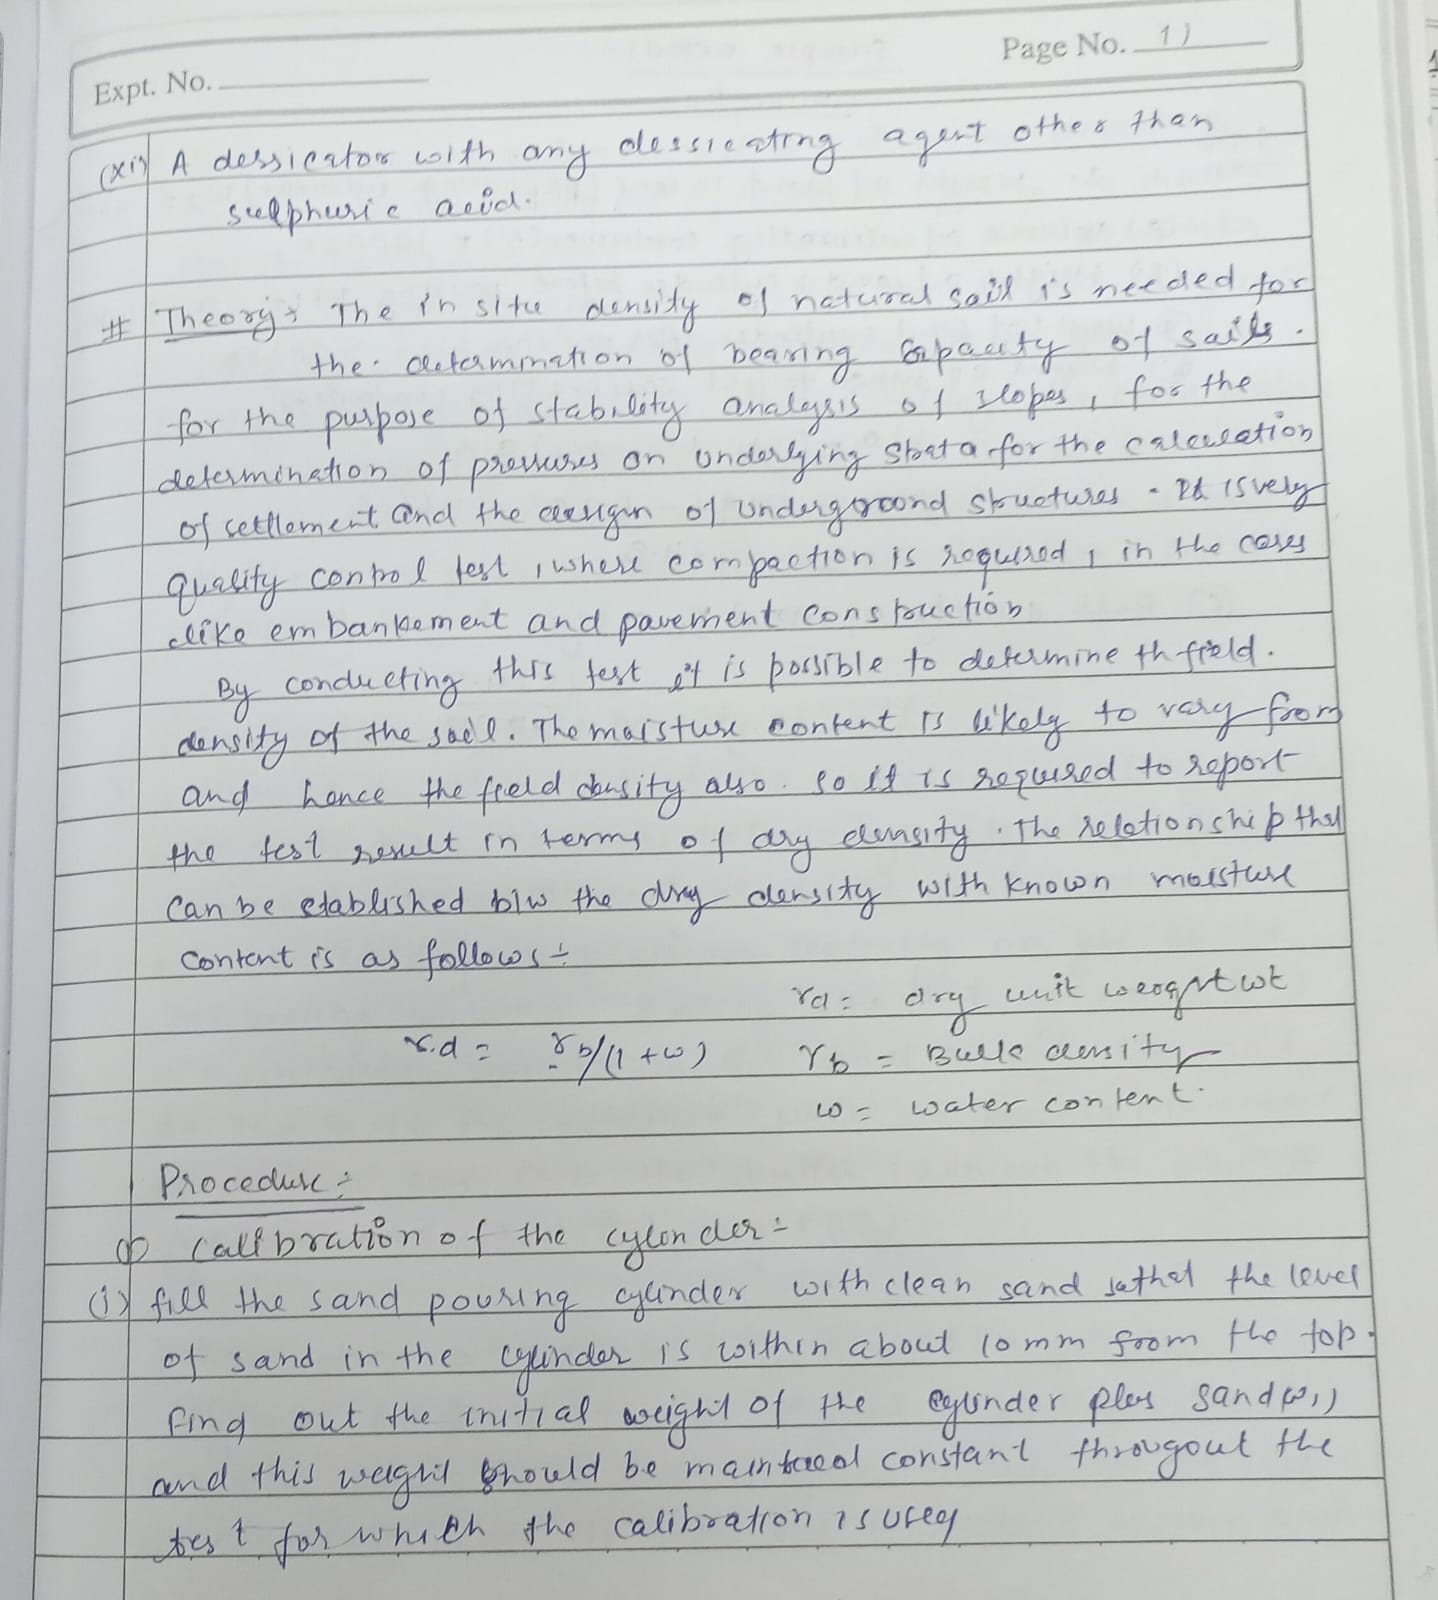 Expt. No.
Page No. 11
(xi) A dessicator with any dessicating agent other than
sulphuric acid.
# Theory:- The in situ density of natural soil is needed for
the determination of bearing capacity of soils.
for the purpose of stability analysis of slopes, for the
determination of pressures on underlying strata for the calculation
of settlement and the design of underground structures. It is very
quality control test, where compaction is required, in the cases
like embankement and pavement construction
By conducting this test it is possible to determine th field.
density of the soil. The moisture content is likely to vary from
and hence the field density also. So it is required to report
the test result in terms of dry density. The relationship that
can be established b/w the dry density with known moisture
content is as follows:-
rd = dry unit wt
r.d = rb/(1+w) rb = Bulk density
w = water content.
Procedure:-
Calibration of the cylinder:-
(i) fill the sand pouring cylinder with clean sand sothat the level
of sand in the cylinder is within about 10 mm from the top.
find out the initial weight of the cylinder plus sand (w1)
and this weight should be maintained constant througout the
test for which the calibration is used